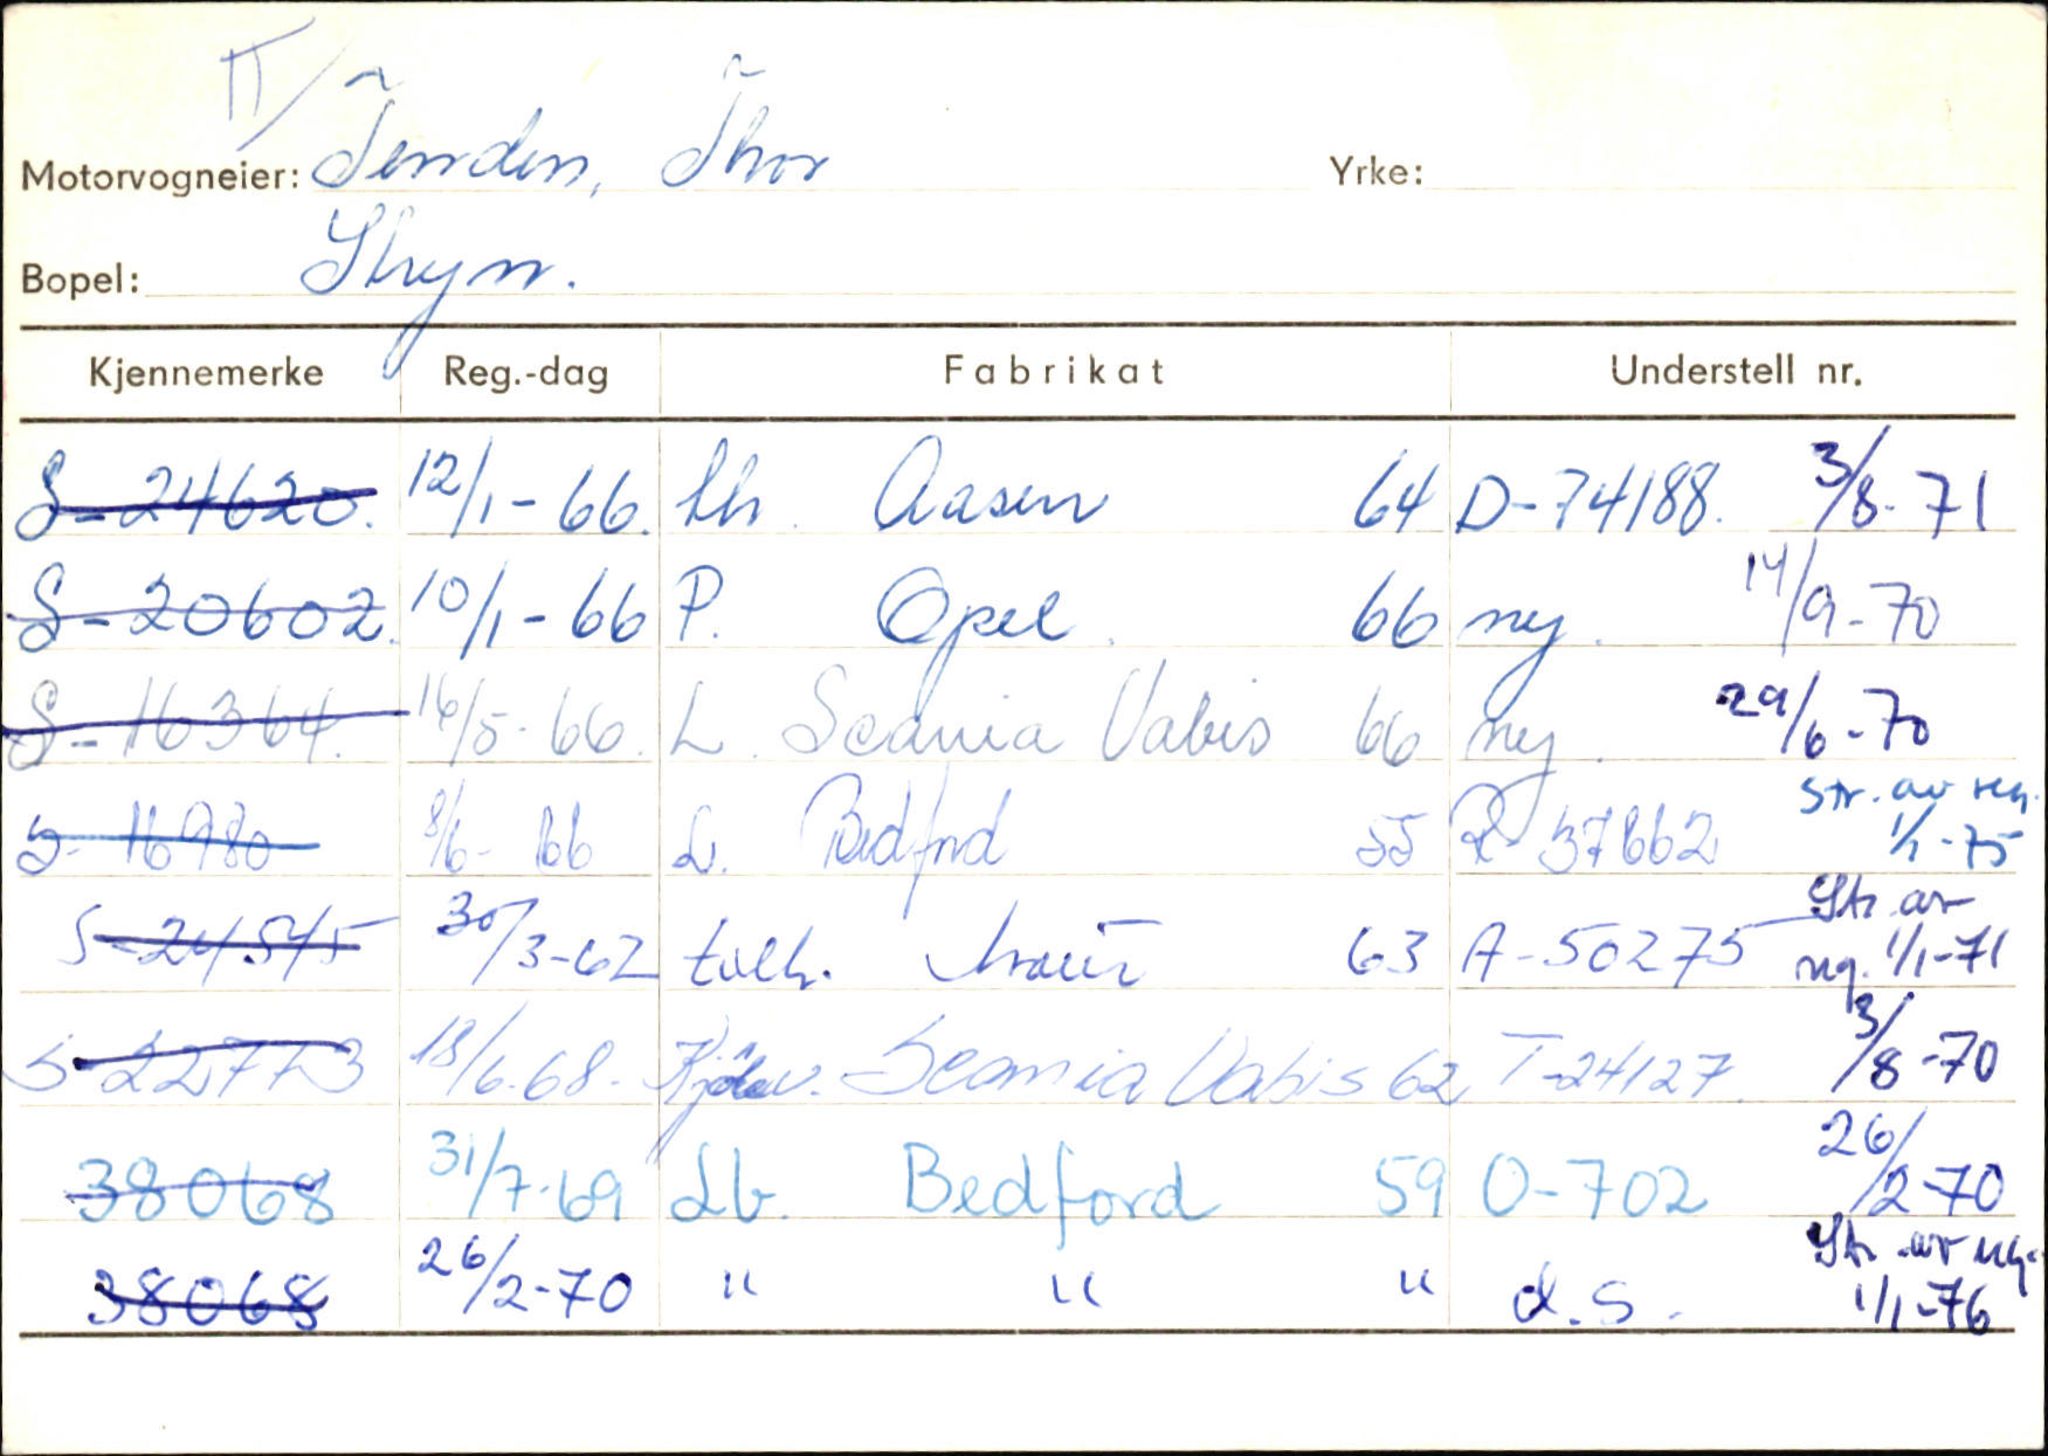 II/
Motorvogneier: Tenden, Thor Yrke:
Bopel: Stryn.
Kjennemerke Reg.-dag Fabrikat Understell nr.
S-24620. 12/1-66. th. Aasen 64 D-74188. 3/8-71
S-20602. 10/1-66 P. Opel. 66 ny. 14/9-70
S-16364. 16/5-66. L. Scania Vabis 66 ny. 29/6-70
S-16980 8/6-66 L. Bedford 55 R 37662 Str. av reg. 1/1-75
S-24545 30/3-62 63 A-50275 Str. av reg. 1/1-71
S-22773 18/6-68. Scania Vabis 62 T-24127. 3/8-70
38068 31/7-69 Lb. Bedford 59 O-702 26/2-70
38068 26/2-70 " " " d.s. Str. av reg. 1/1-76